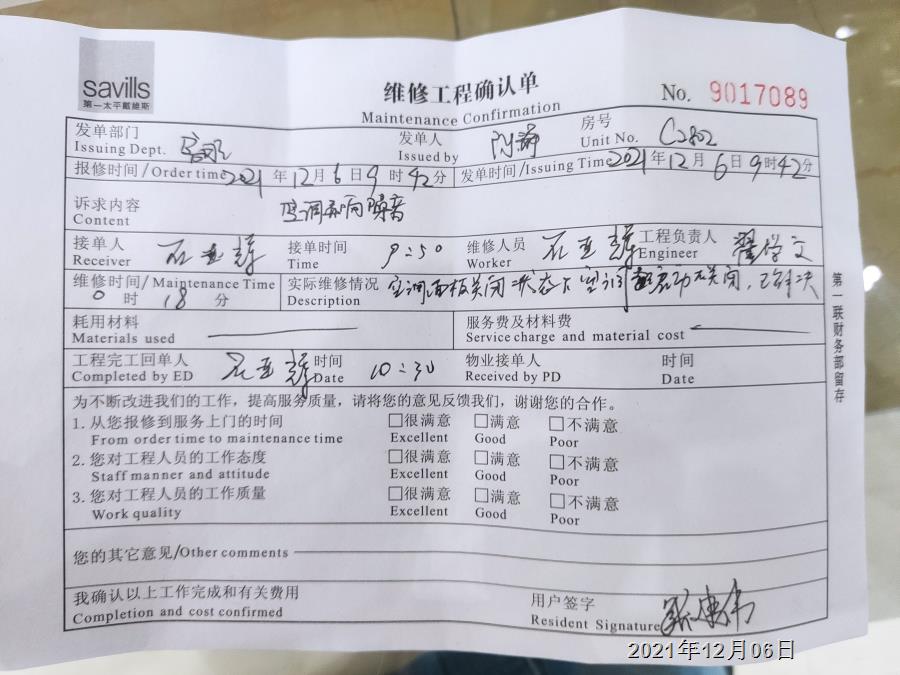 savills
第一太平戴维斯
维修工程确认单
Maintenance Confirmation
No. 9017089
发单部门 发单人 房号
Issuing Dept. 客服 Issued by Unit No. C2802
报修时间/Order time 2021年12月6日9时42分 发单时间/Issuing Time 2021年12月6日9时42分
诉求内容 空调 响 噪音
Content
接单人 石亚辉 接单时间 9:50 维修人员 石亚辉 工程负责人 翟学文
Receiver Time Worker Engineer
维修时间/Maintenance Time 实际维修情况 空调面板关闭状态下空调 启动 关闭,已解决
0时18分 Description
耗用材料 服务费及材料费
Materials used Service charge and material cost
工程完工回单人 石亚辉 时间 10:30 物业接单人 时间
Completed by ED Date Received by PD Date
为不断改进我们的工作，提高服务质量，请将您的意见反馈我们，谢谢您的合作。
1. 从您报修到服务上门的时间 □很满意 □满意 □不满意
From order time to maintenance time Excellent Good Poor
2. 您对工程人员的工作态度 □很满意 □满意 □不满意
Staff manner and attitude Excellent Good Poor
3. 您对工程人员的工作质量 □很满意 □满意 □不满意
Work quality Excellent Good Poor
您的其它意见/Other comments
我确认以上工作完成和有关费用 用户签字
Completion and cost confirmed Resident Signature
第一联财务部留存
2021年12月06日